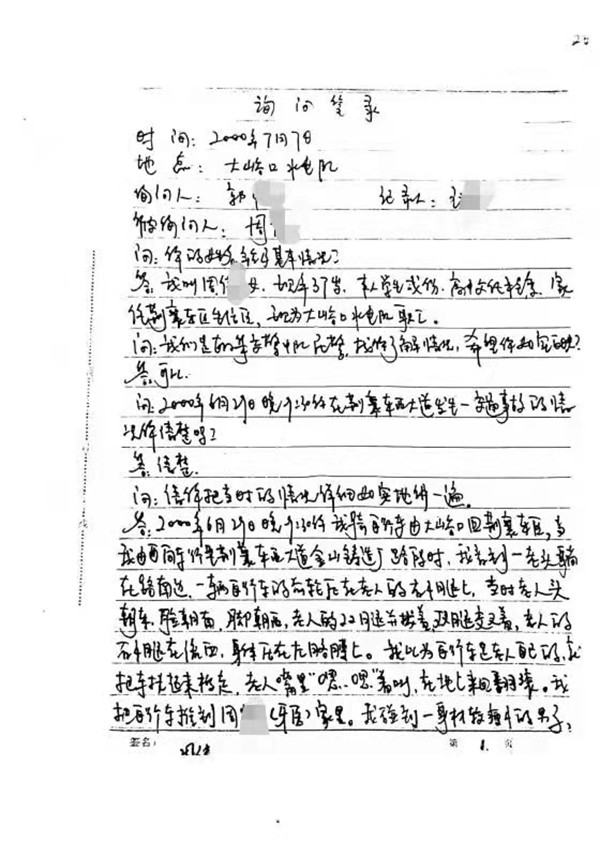 20
询问笔录
时 间：2000年7月7日
地 点：大峪口水电队
询问人：郭 记录人：
被询问人：周
问：你的姓名年龄基本情况？
答：我叫周 女，现年37岁，本人学生成份，高中文化，家
住荆襄东区生活区，现为大峪口水电队职工。
问：我们是 交警中队民警，找你了解情况，希望你如实
答：可以。
问：2000年6月29日晚 在荆襄东区大道发生一交通事故的情
况你清楚吗？
答：清楚。
问：请你把当时的情况详细如实地讲一遍。
答：2000年6月29日晚 我骑自行车由大峪口回荆襄东区，当
我由西向东行至荆襄东区大道金山铸造厂路段时，我看到一老头躺
在路南边，一辆自行车的前轮压在老人的右小腿上，当时老人头
朝东，脸朝南，脚朝西，老人的双腿 双腿交叉着，老人的
右小腿在后面，身体压在左胳膊上。我以为自行车是老人自己的，就
把车扶起来 老人嘴里“嗯…嗯”着叫，在地上来回翻滚。我
把自行车推到周 （牙医）家里。我碰到一身材较瘦小的男子，
签名： 第 1. 页